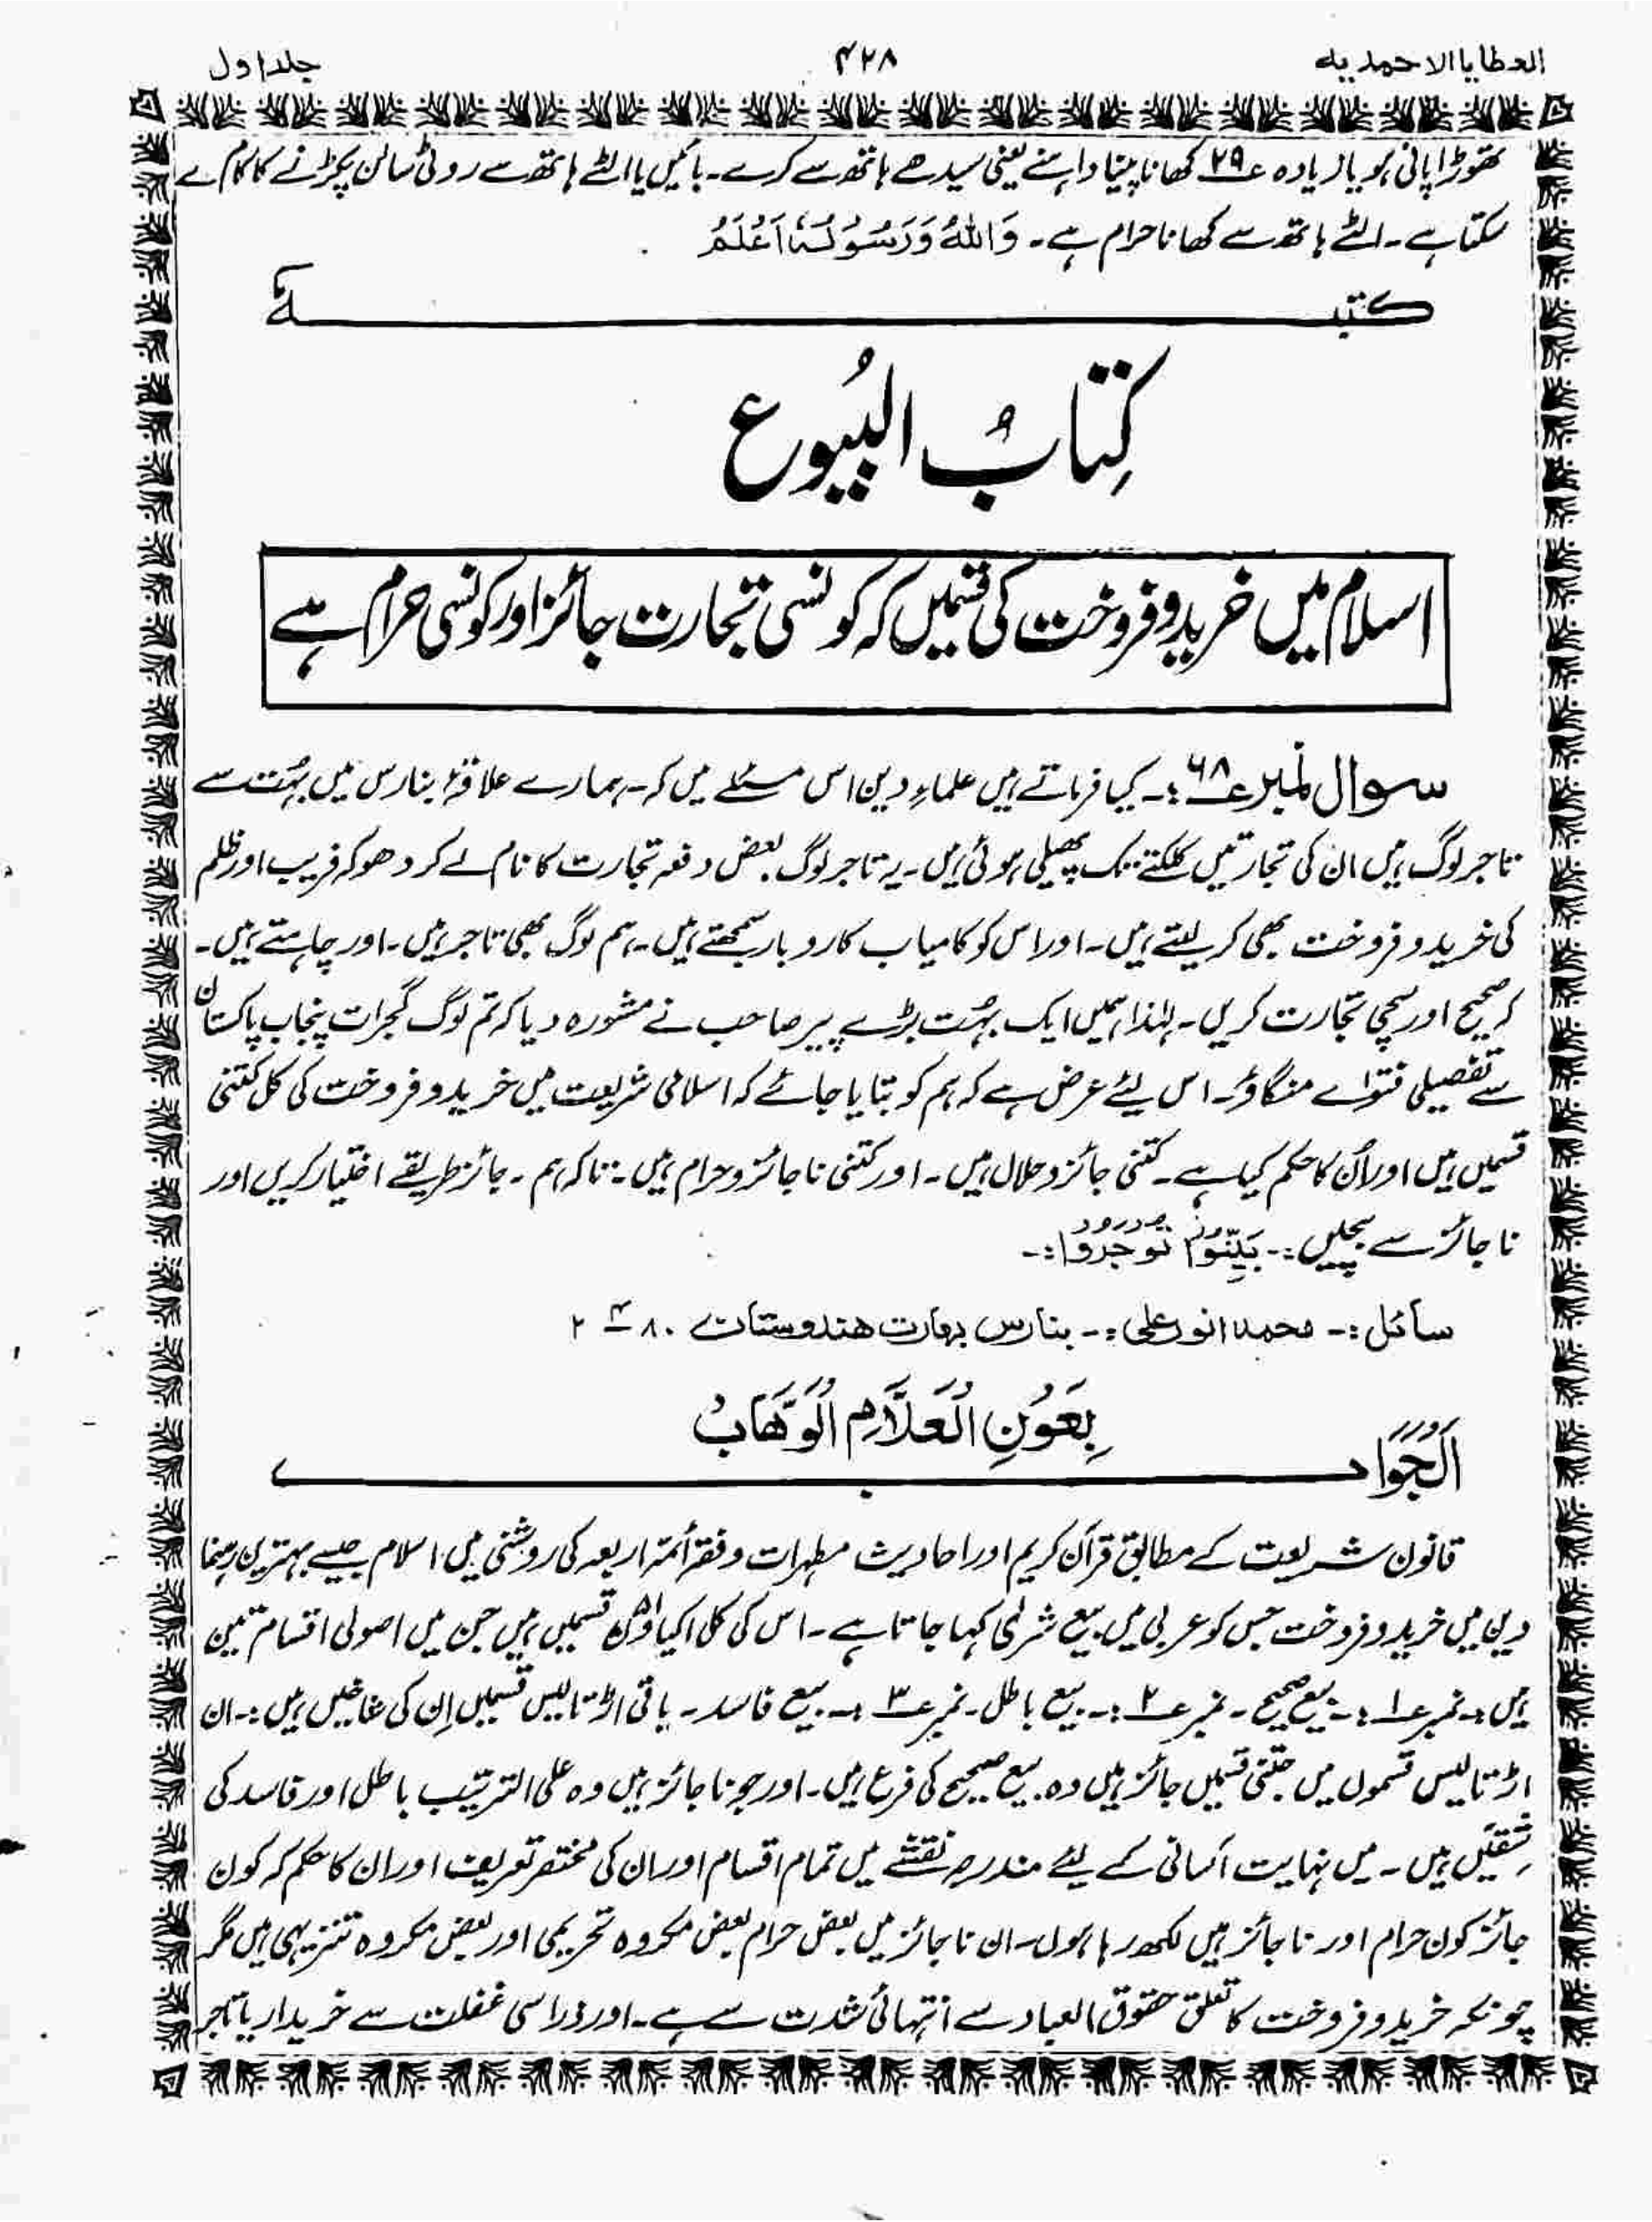 العطایا الاحمدیہ
۴۲۸
جلد اول
تھوڑا پانی ہو یا زیادہ ع۲۹ کھانا پینا داہنے یعنی سیدھے ہاتھ سے کرے۔ بائیں یا الٹے ہاتھ سے روٹی سالن پکڑنے کا کام لے
سکتا ہے۔ الٹے ہاتھ سے کھانا حرام ہے۔ وَاللّٰهُ وَرَسُوْلُهٗ اَعْلَمُ
کتبہ
کِتَابُ البُیوع
اسلام میں خرید و فروخت کی قسمیں کہ کونسی تجارت جائز اور کونسی حرام ہے
سوال نمبر ع۶۸:۔ کیا فرماتے ہیں علماءِ دین اس مسئلے میں کہ۔ ہمارے علاقۂ بنارس میں بہُت سے
تاجر لوگ ہیں ان کی تجارتیں کلکتے تک پھیلی ہوئی ہیں۔ یہ تاجر لوگ بعض دفعہ تجارت کا نام لے کر دھوکہ فریب اور ظلم
کی خرید و فروخت بھی کر لیتے ہیں۔ اور اس کو کامیاب کاروبار سمجھتے ہیں۔ ہم لوگ بھی تاجر ہیں۔ اور چاہتے ہیں۔
کہ صحیح اور سچی تجارت کریں۔ لہٰذا ہمیں ایک بہُت بڑے پیر صاحب نے مشورہ دیا کہ تم لوگ گجرات پنجاب پاکستان
سے تفصیلی فتوٰے منگاؤ۔ اس لیئے عرض ہے کہ ہم کو بتایا جائے کہ اسلامی شریعت میں خرید و فروخت کی کل کتنی
قسمیں ہیں اور اُن کا حکم کیا ہے۔ کتنی جائز و حلال ہیں۔ اور کتنی ناجائز و حرام ہیں۔ تاکہ ہم۔ جائز طریقے اختیار کریں اور
ناجائز سے بچیں:۔ بَیِّنُوْا تُوْجَرُوْا:۔
سائل:۔ محمد انور علی:۔ بنارس بھارت ھندوستان ۸۰-۴-۲
اَلْجَوَاب
بِعَوْنِ الْعَلَّامِ الْوَهَّابْ
قانون شریعت کے مطابق قرآن کریم اور احادیث مطہرات و فقہ أئمہ اربعہ کی روشنی میں اسلام جیسے بہترین رہنما
دین میں خرید و فروخت جس کو عربی میں بیع شرٰی کہا جاتا ہے۔ اس کی کل اکیاون قسمیں ہیں جن میں اصولی اقسام تین
ہیں:۔ نمبر ع۱:۔ بیع صحیح۔ نمبر ع۲:۔ بیع باطل۔ نمبر ع۳:۔ بیع فاسد۔ باقی اڑتالیس قسمیں اِن کی شاخیں ہیں:۔ ان
اڑتالیس قسموں میں جتنی قسمیں جائز ہیں وہ بیع صحیح کی فرع ہیں۔ اور جو ناجائز ہیں وہ علی الترتیب باطل اور فاسد کی
شِقیّں ہیں۔ میں نہایت آسانی کے لیئے مندرجہ نقشے میں تمام اقسام اور ان کی مختصر تعریف اور ان کا حکم کہ کون
جائز کون حرام اور ناجائز ہیں لکھ رہا ہوں۔ ان ناجائز میں بعض حرام بعض مکروہ تحریمی اور بعض مکروہ تنزیہی ہیں مگر
چونکہ خرید و فروخت کا تعلق حقوق العباد سے انتہائی شدت سے ہے۔ اور ذرا سی غفلت سے خریدار یا تاجر